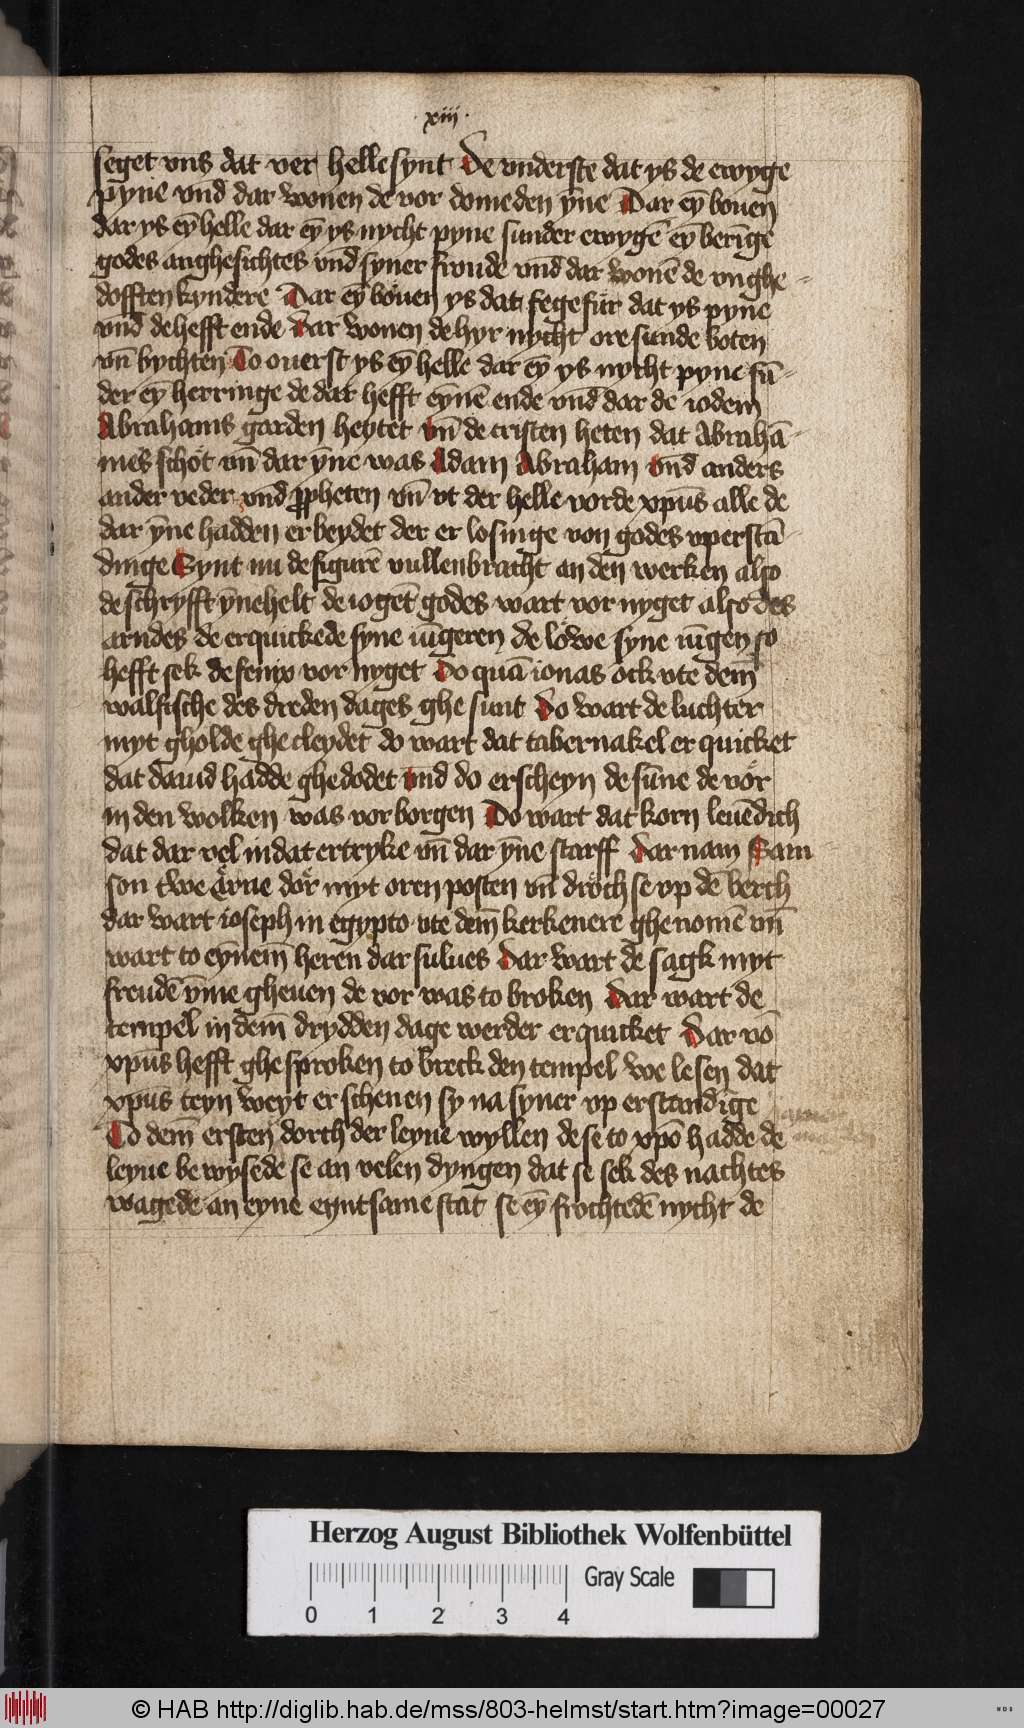 xiij.
seget vns dat ver helle synt De vnderste dat ys de ewyge
pyne vnd dar wonen de vor domeden ȳne Dar eȳ bouen
dar ys eȳ helle dar eȳ ys nycht pyne sunder ewygē eȳ berīge
godes anghesichtes vnd̄ syner froude vnd̄ dar wonē de vnghe-
dofften kyndere Dar eȳ bouen ys dat fegefür dat ys pyne
vnd̄ de hefft ende Dar wonen de hyr nycht ore sunde boten
vn̄ bychten To ouerst ys eȳ helle dar eȳ ys nycht pyne sū-
der eȳ herringe de dar hefft eȳnē ende vnd̄ dar de ioden
Abrahams garden heytet vn̄ de cristen heten dat Abrahā-
mes schöt vn̄ dar ȳne was Adam Abraham vnd anders
ander veder vnd ꝓpheten vn̄ vt der helle vorde xp̄us alle de
dar ȳne hadden erbeydet der er losinge von godes vperstā-
dinge Synt nu de figurē vullenbracht an den werken also
de schryfft ȳnehelt de ioget godes wart vor nyget also des
arndes de erquickede syne iūgeren de löwe syne iūgen so
hefft sek de fenix vor nyget Do quā ionas ock vte dem̄
walfische des dreden dages ghe sunt Do wart de luchter
myt gholde ghecleydet do wart dat tabernakel er quicket
dat dauid hadde ghedodet vnd do erscheyn de sūne de vör
in den wolken was vor borgen Do wart dat korn leuēdich
dat dar vel in dat ertryke vn̄ dar ȳne starff dar nam Sam-
son twe ërne dör myt oren posten vn̄ dröch se vp dē berch
dar wart ioseph in egypto vte dem̄ kerkenere ghenomē vn̄
wart to eȳnem̄ heren dar sulues Dar wart de sagk myt
freudē ȳme gheuen de vor was to broken Dar wart de
tempel in dem̄ drydden dage werder erquicket Dar vō
xp̄us hefft ghesproken to breck den tempel we lesen dat
xp̄us teyn weyt erschenen sy na syner vp erstandīge
To dem̄ ersten dorch der leyue wyllen de se to xp̄o hadde de
leyue bewysede se an velen dyngen dat se sek des nachtes
wagede an eyne eyntsame stat se eȳ frochtedē nycht de
Herzog August Bibliothek Wolfenbüttel
Gray Scale
0 1 2 3 4
© HAB http://diglib.hab.de/mss/803-helmst/start.htm?image=00027